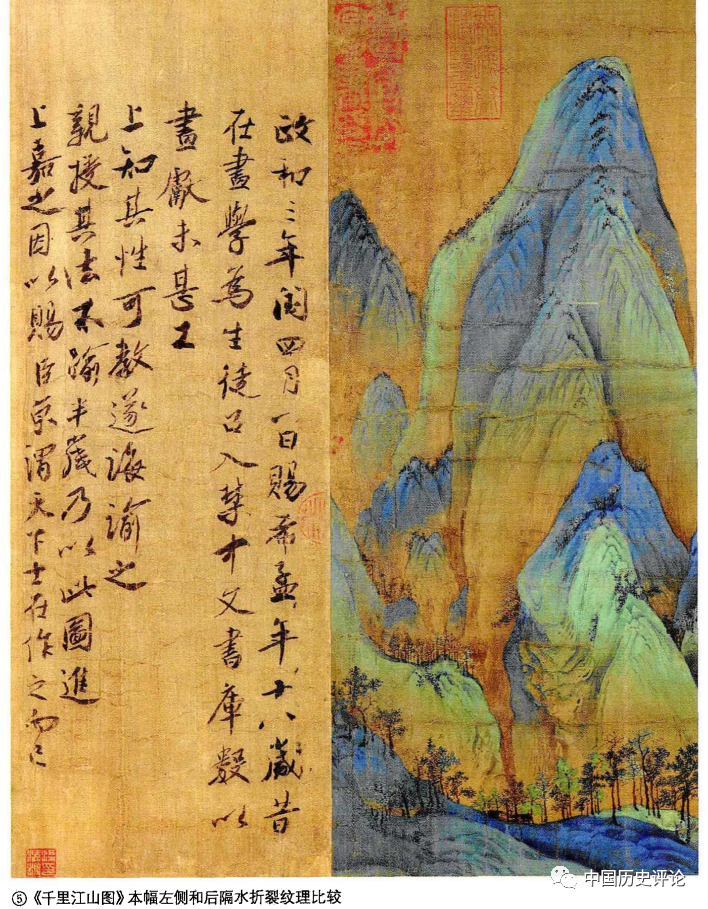 政和三年閏四月一日賜希孟年十八歲昔
在畫學為生徒召入禁中文書庫數以
畫獻未甚工
上知其性可教遂誨諭之
親授其法不踰半歲乃以此圖進
上嘉之因以賜臣京謂天下士在作之而已
⑤《千里江山图》本幅左侧和后隔水折裂纹理比较
中国历史评论